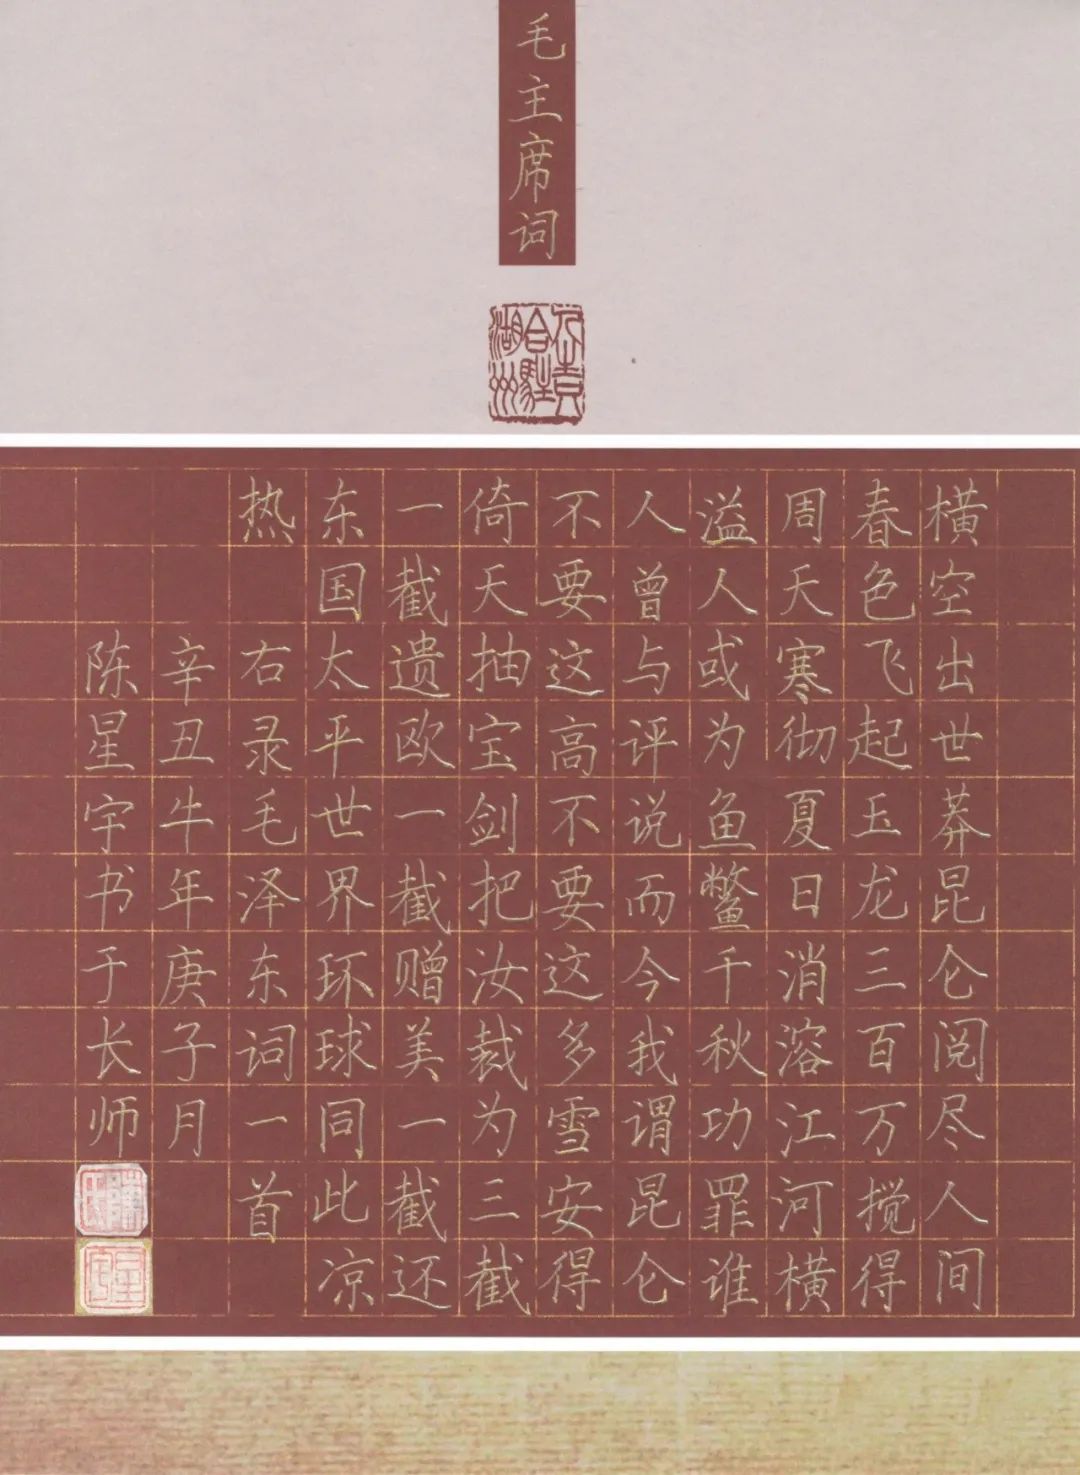 毛主席词
横空出世莽昆仑阅尽人间
春色飞起玉龙三百万搅得
周天寒彻夏日消溶江河横
溢人或为鱼鳖千秋功罪谁
人曾与评说而今我谓昆仑
不要这高不要这多雪安得
倚天抽宝剑把汝裁为三截
一截遗欧一截赠美一截还
东国太平世界环球同此凉
热 右录毛泽东词一首
辛丑牛年庚子月
陈星宇书于长师